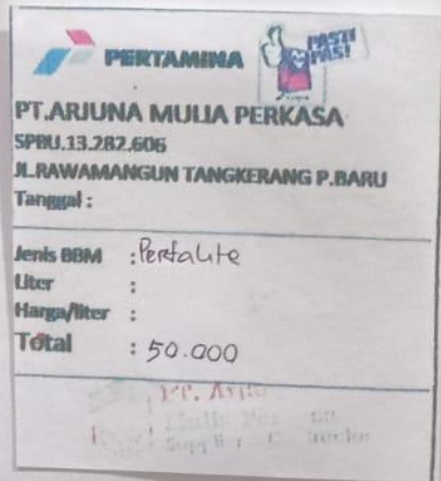 PERTAMINA PASTI PAS!
PT.ARJUNA MULIA PERKASA
SPBU.13.282.606
JL.RAWAMANGUN TANGKERANG P.BARU
Tanggal :
Jenis BBM : Pertalite
Liter :
Harga/liter :
Total : 50.000
PT.